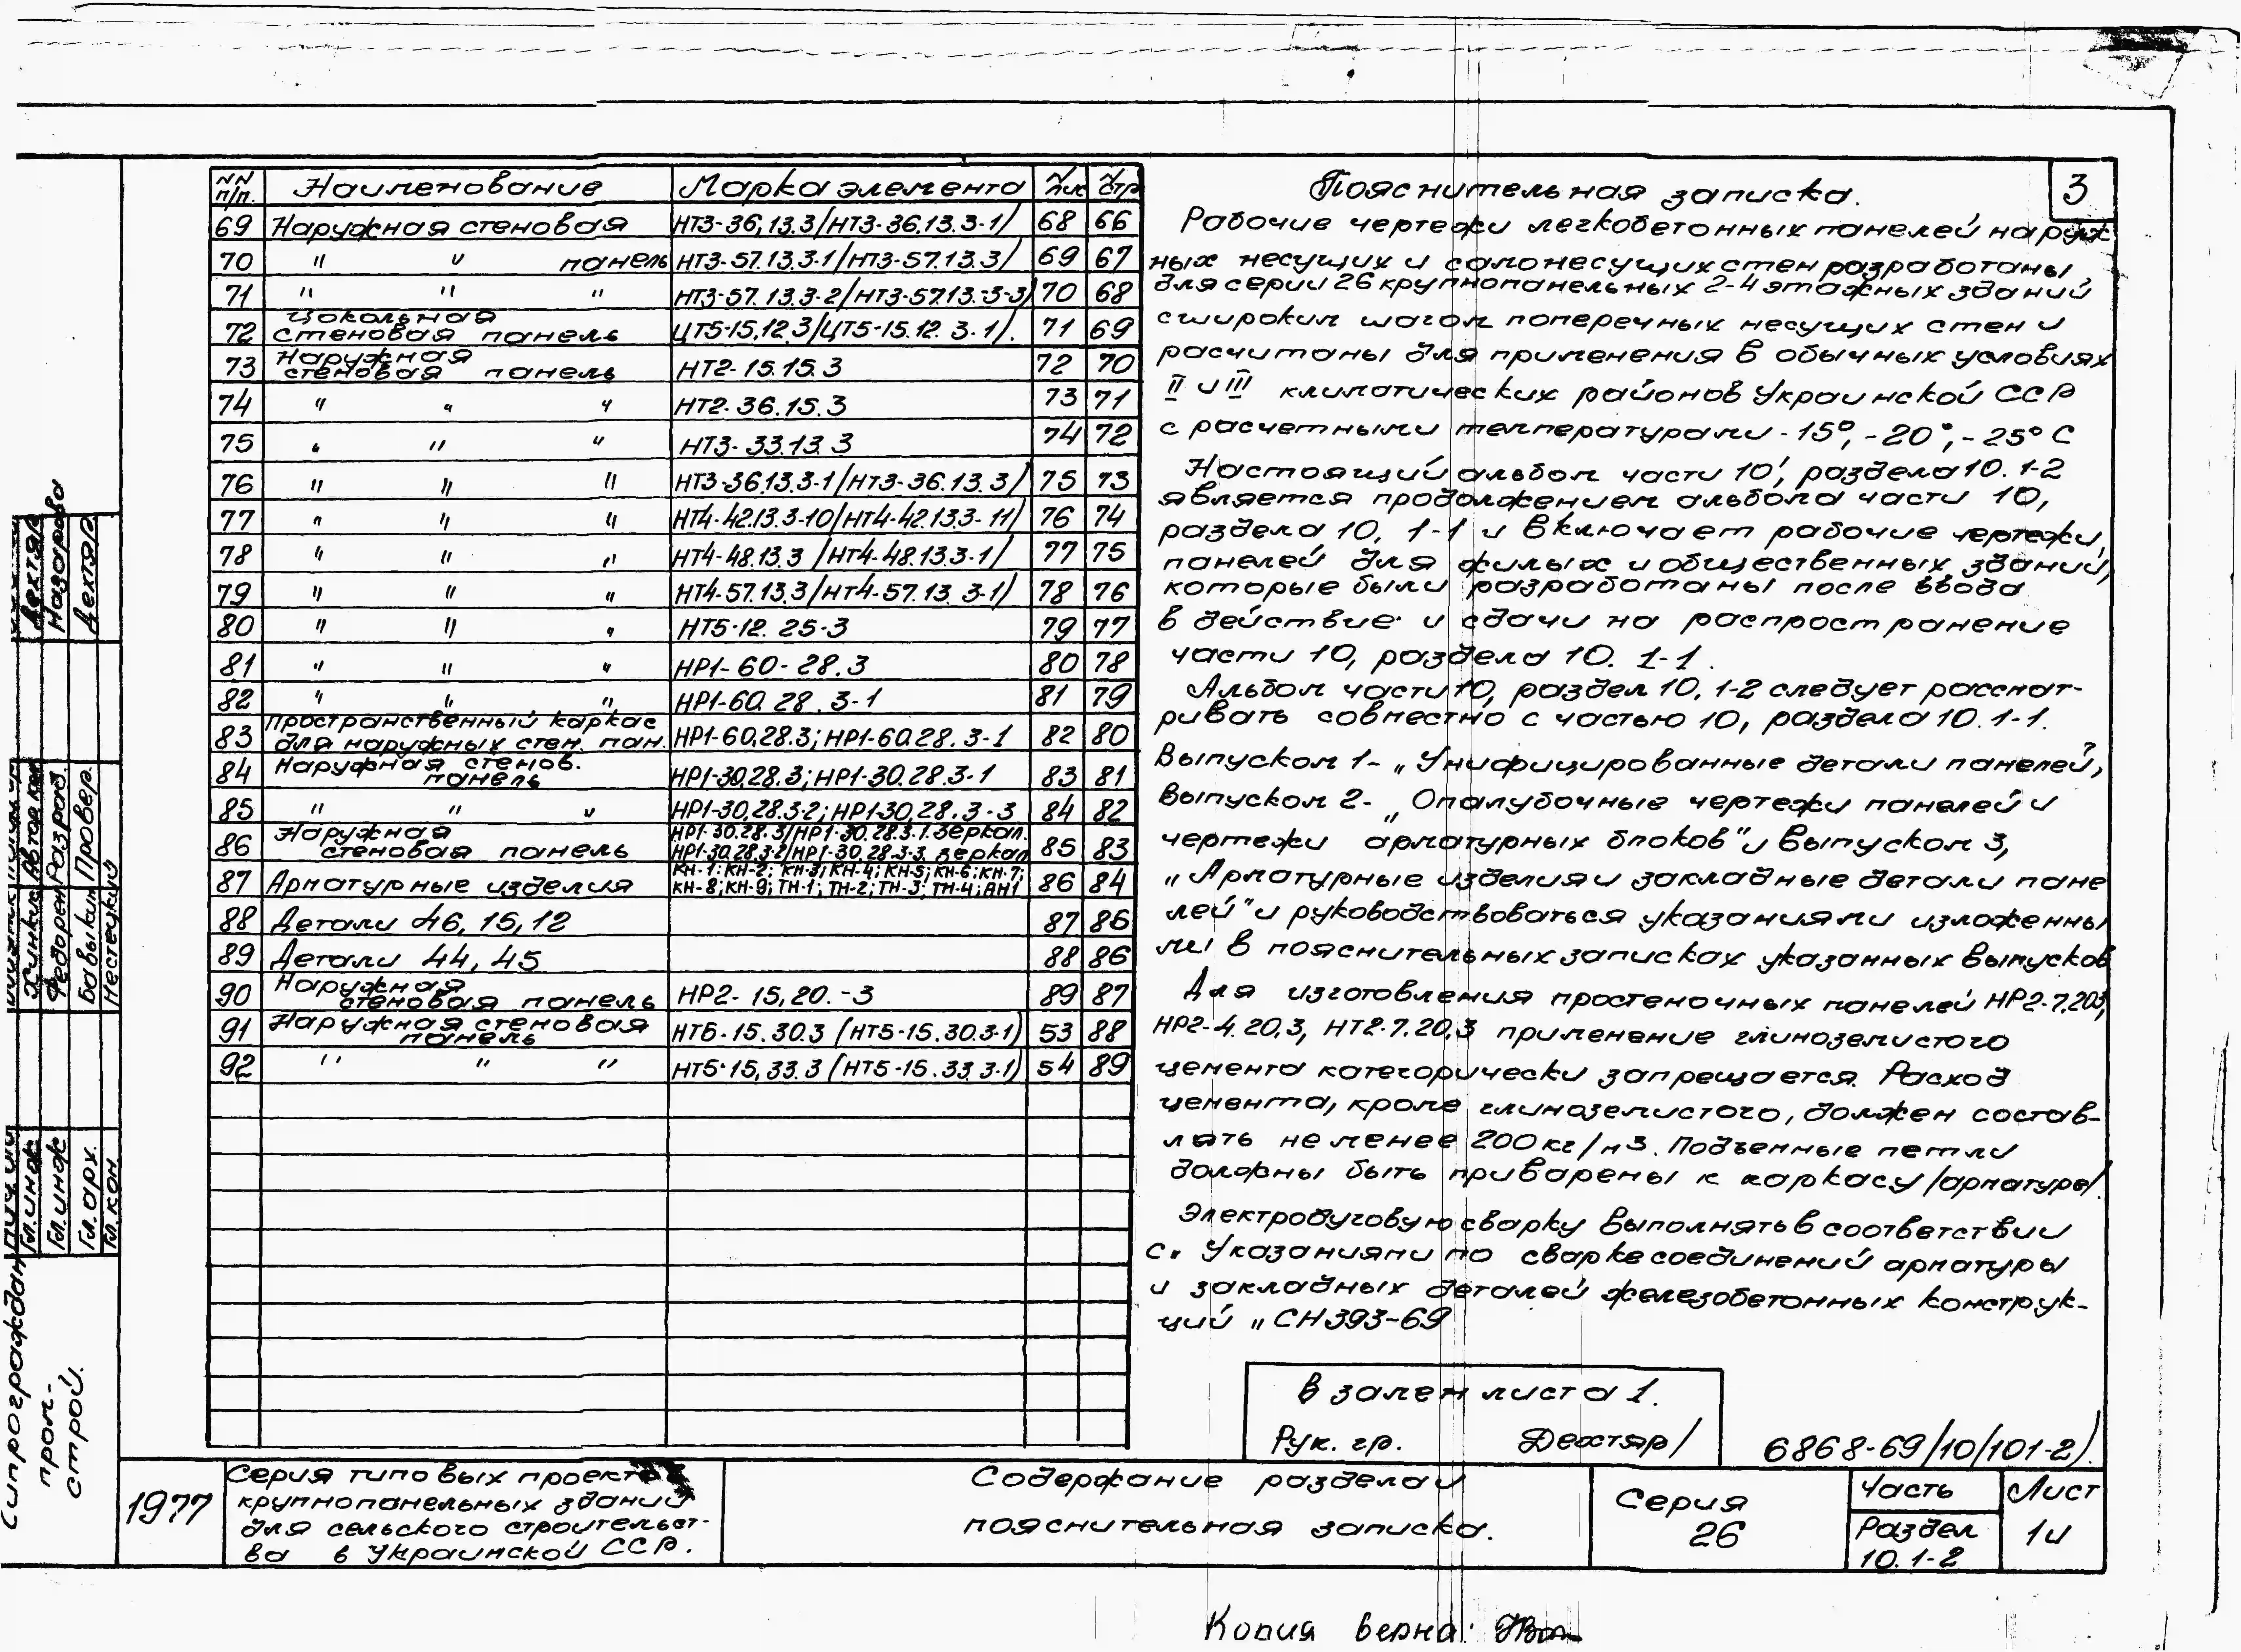 3
NN п/п. Наименование Марка элемента N лис N стр
69 Наружная стеновая НТ3-36,13.3/НТ3-36.13.3-1/ 68 66
70 " " панель НТ3-57.13.3-1/НТ3-57.13.3/ 69 67
71 " " " НТ3-57.13.3-2/НТ3-57.13.-3-3/ 70 68
72 Цокольная стеновая панель ЦТ5-15.12.3/ЦТ5-15.12.3-1/. 71 69
73 Наружная стеновая панель НТ2-15.15.3 72 70
74 " " " НТ2-36.15.3 73 71
75 " " " НТ3-33.13.3 74 72
76 " " " НТ3-36.13.3-1/НТ3-36.13.3/ 75 73
77 " " " НТ4-42.13.3-10/НТ4-42.13.3-11/ 76 74
78 " " " НТ4-48.13.3/НТ4-48.13.3-1/ 77 75
79 " " " НТ4-57.13.3/НТ4-57.13.3-1/ 78 76
80 " " " НТ5-12.25-3 79 77
81 " " " НР1-60-28.3 80 78
82 " " " НР1-60.28.3-1 81 79
83 Пространственный каркас для наружных стен. пан. НР1-60.28.3; НР1-60.28.3-1 82 80
84 Наружная стенов. панель НР1-30.28.3; НР1-30.28.3-1 83 81
85 " " " НР1-30.28.3-2; НР1-30.28.3-3 84 82
86 Наружная стеновая панель НР1-30.28.3/НР1-30.28.3.1.зеркал. НР1-30.28.3-2/НР1-30.28.3-3.зеркал 85 83
87 Арматурные изделия КН-1; КН-2; КН-3; КН-4; КН-5; КН-6; КН-7; КН-8; КН-9; ТН-1; ТН-2; ТН-3; ТН-4; АН1 86 84
88 Детали 46, 15, 12 87 86
89 Детали 44, 45 88 86
90 Наружная стеновая панель НР2-15,20.-3 89 87
91 Наружная стеновая панель НТ5-15.30.3 (НТ5-15.30.3-1) 53 88
92 " " " НТ5-15,33.3 (НТ5-15.33.3-1) 54 89
Пояснительная записка.
Рабочие чертежи легкобетонных панелей наруж
ных несущих и самонесущих стен разработаны
для серии 26 крупнопанельных 2-4 этажных зданий
с широким шагом поперечных несущих стен и
расчитаны для применения в обычных условиях
II и III климатических районов Украинской ССР
с расчетными температурами -15°, -20°, -25° С
Настоящий альбом части 10, раздела 10. 1-2
является продолжением альбома части 10,
раздела 10. 1-1 и включает рабочие чертежи
панелей для жилых и общественных зданий,
которые были разработаны после ввода
в действие и сдачи на распространение
части 10, раздела 10. 1-1.
Альбом части 10, раздел 10. 1-2 следует рассмат-
ривать совместно с частью 10, раздела 10. 1-1.
Выпуском 1- „Унифицированные детали панелей",
выпуском 2- „Опалубочные чертежи панелей и
чертежи арматурных блоков" и выпуском 3,
„Арматурные изделия и закладные детали пане
лей" и руководствоваться указаниями изложенны
ми в пояснительных записках указанных выпусков
Для изготовления простеночных панелей НР2-7.20.3,
НР2-4.20.3, НТ2-7.20.3 применение глиноземистого
цемента категорически запрещается. Расход
цемента, кроме глиноземистого, должен состав-
лять не менее 200 кг/м3. Подъемные петли
должны быть приварены к каркасу /арматуре/.
Электродуговую сварку выполнять в соответствии
с „Указаниями по сварке соединений арматуры
и закладных деталей железобетонных конструк-
ций" СН 393-69
Взамен листа 1.
Рук. гр. Дехтяр/
6868-69/10/101-2)
1977
Серия типовых проектов
крупнопанельных зданий
для сельского строительст-
ва в Украинской ССР.
Содержание раздела и
пояснительная записка.
Серия
26
Часть
Раздел
10. 1-2
Лист
1и
Копия верна:
Гипрограждан
пром-
строй.
Гл. инж
Гл. инж
Гл. арх.
Гл. кон.
Федорен
Бавыкин
Нестецкий
Автор
Разраб.
Провер.
Дехтяр
Назарова
Дехтяр